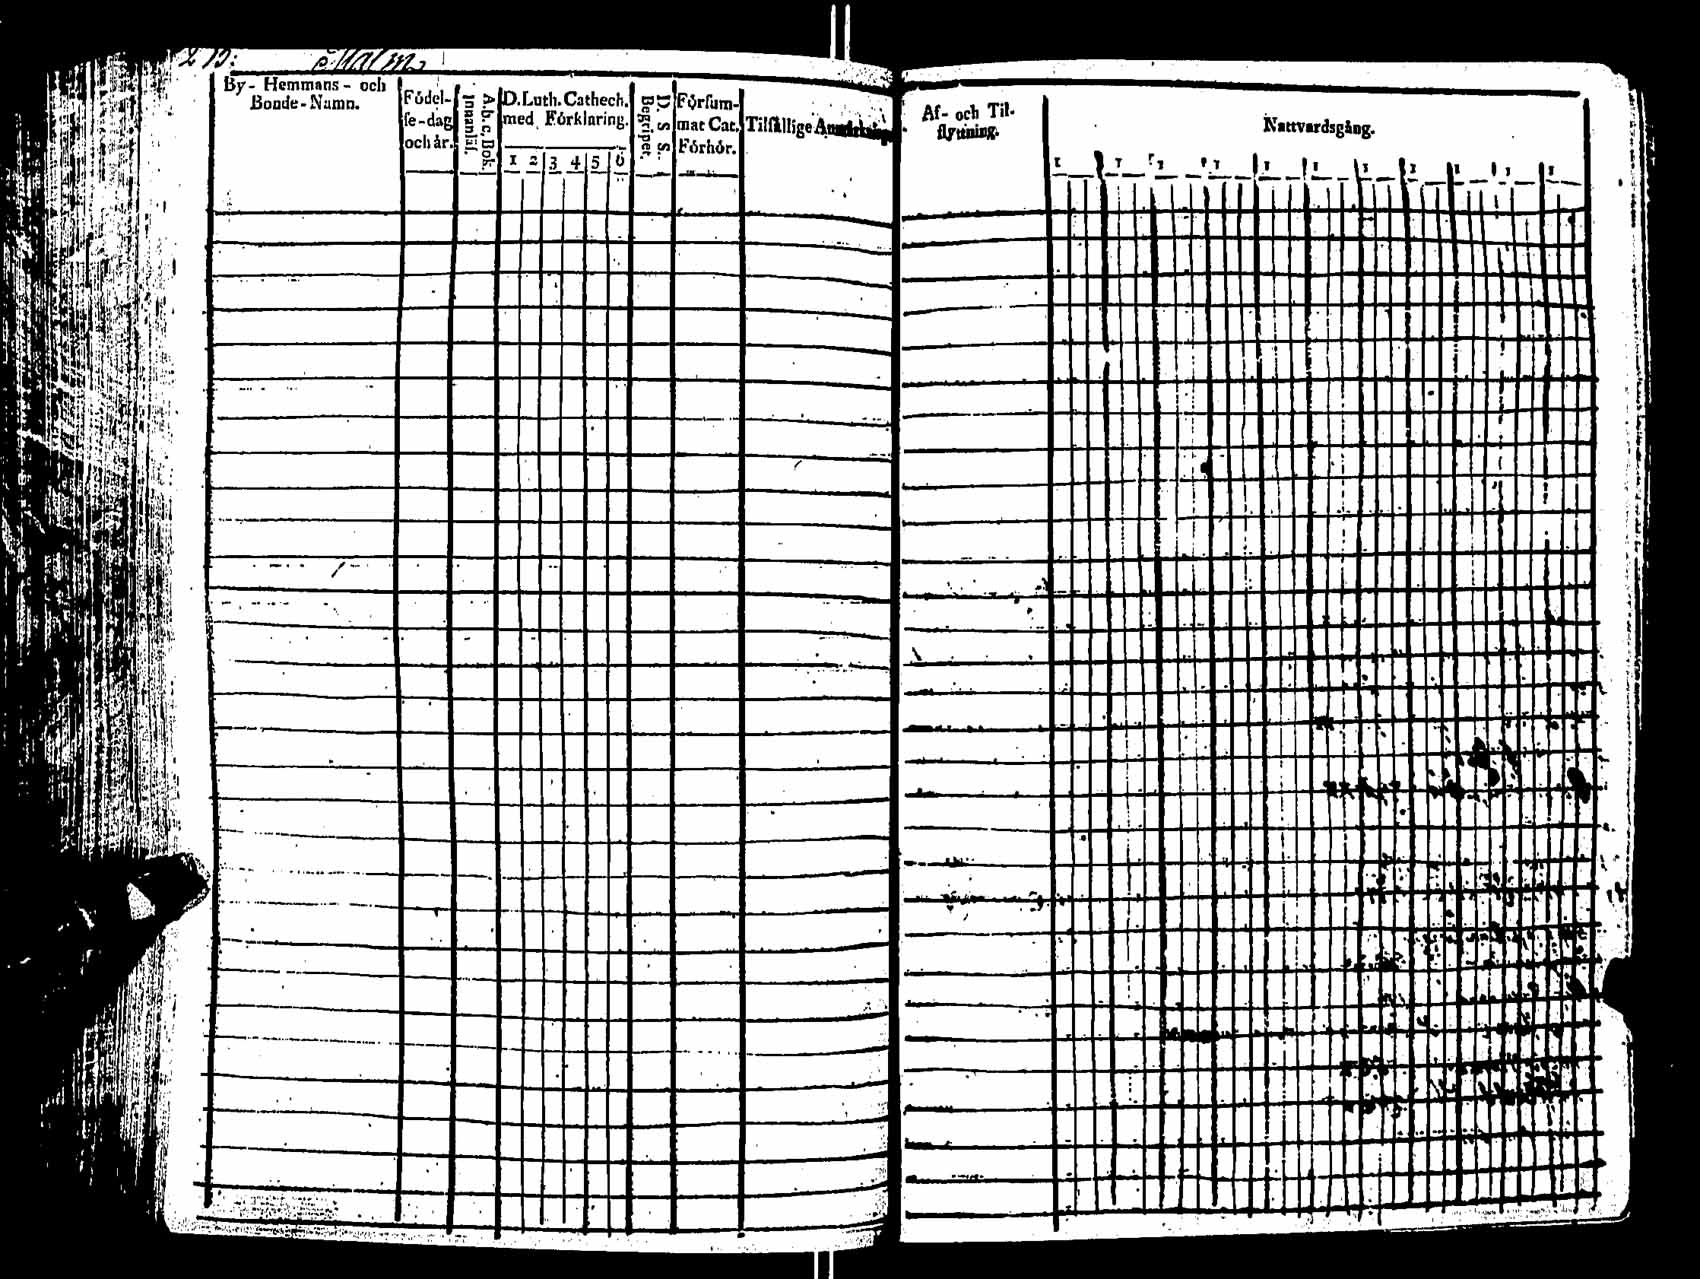 Malm
By - Hemmans - och
Bonde - Namn.
Födel-
se-dag
och år.
A.b.c, Bok.
Innanläs.
D. Luth. Cathech.
med Förklaring.
1 2 3 4 5 6
D. S. S.
Begripet.
Försum-
mat Cat.
Förhör.
Tilfällige Anmärkning
Af- och Til-
flyttning.
Nattvardsgång.